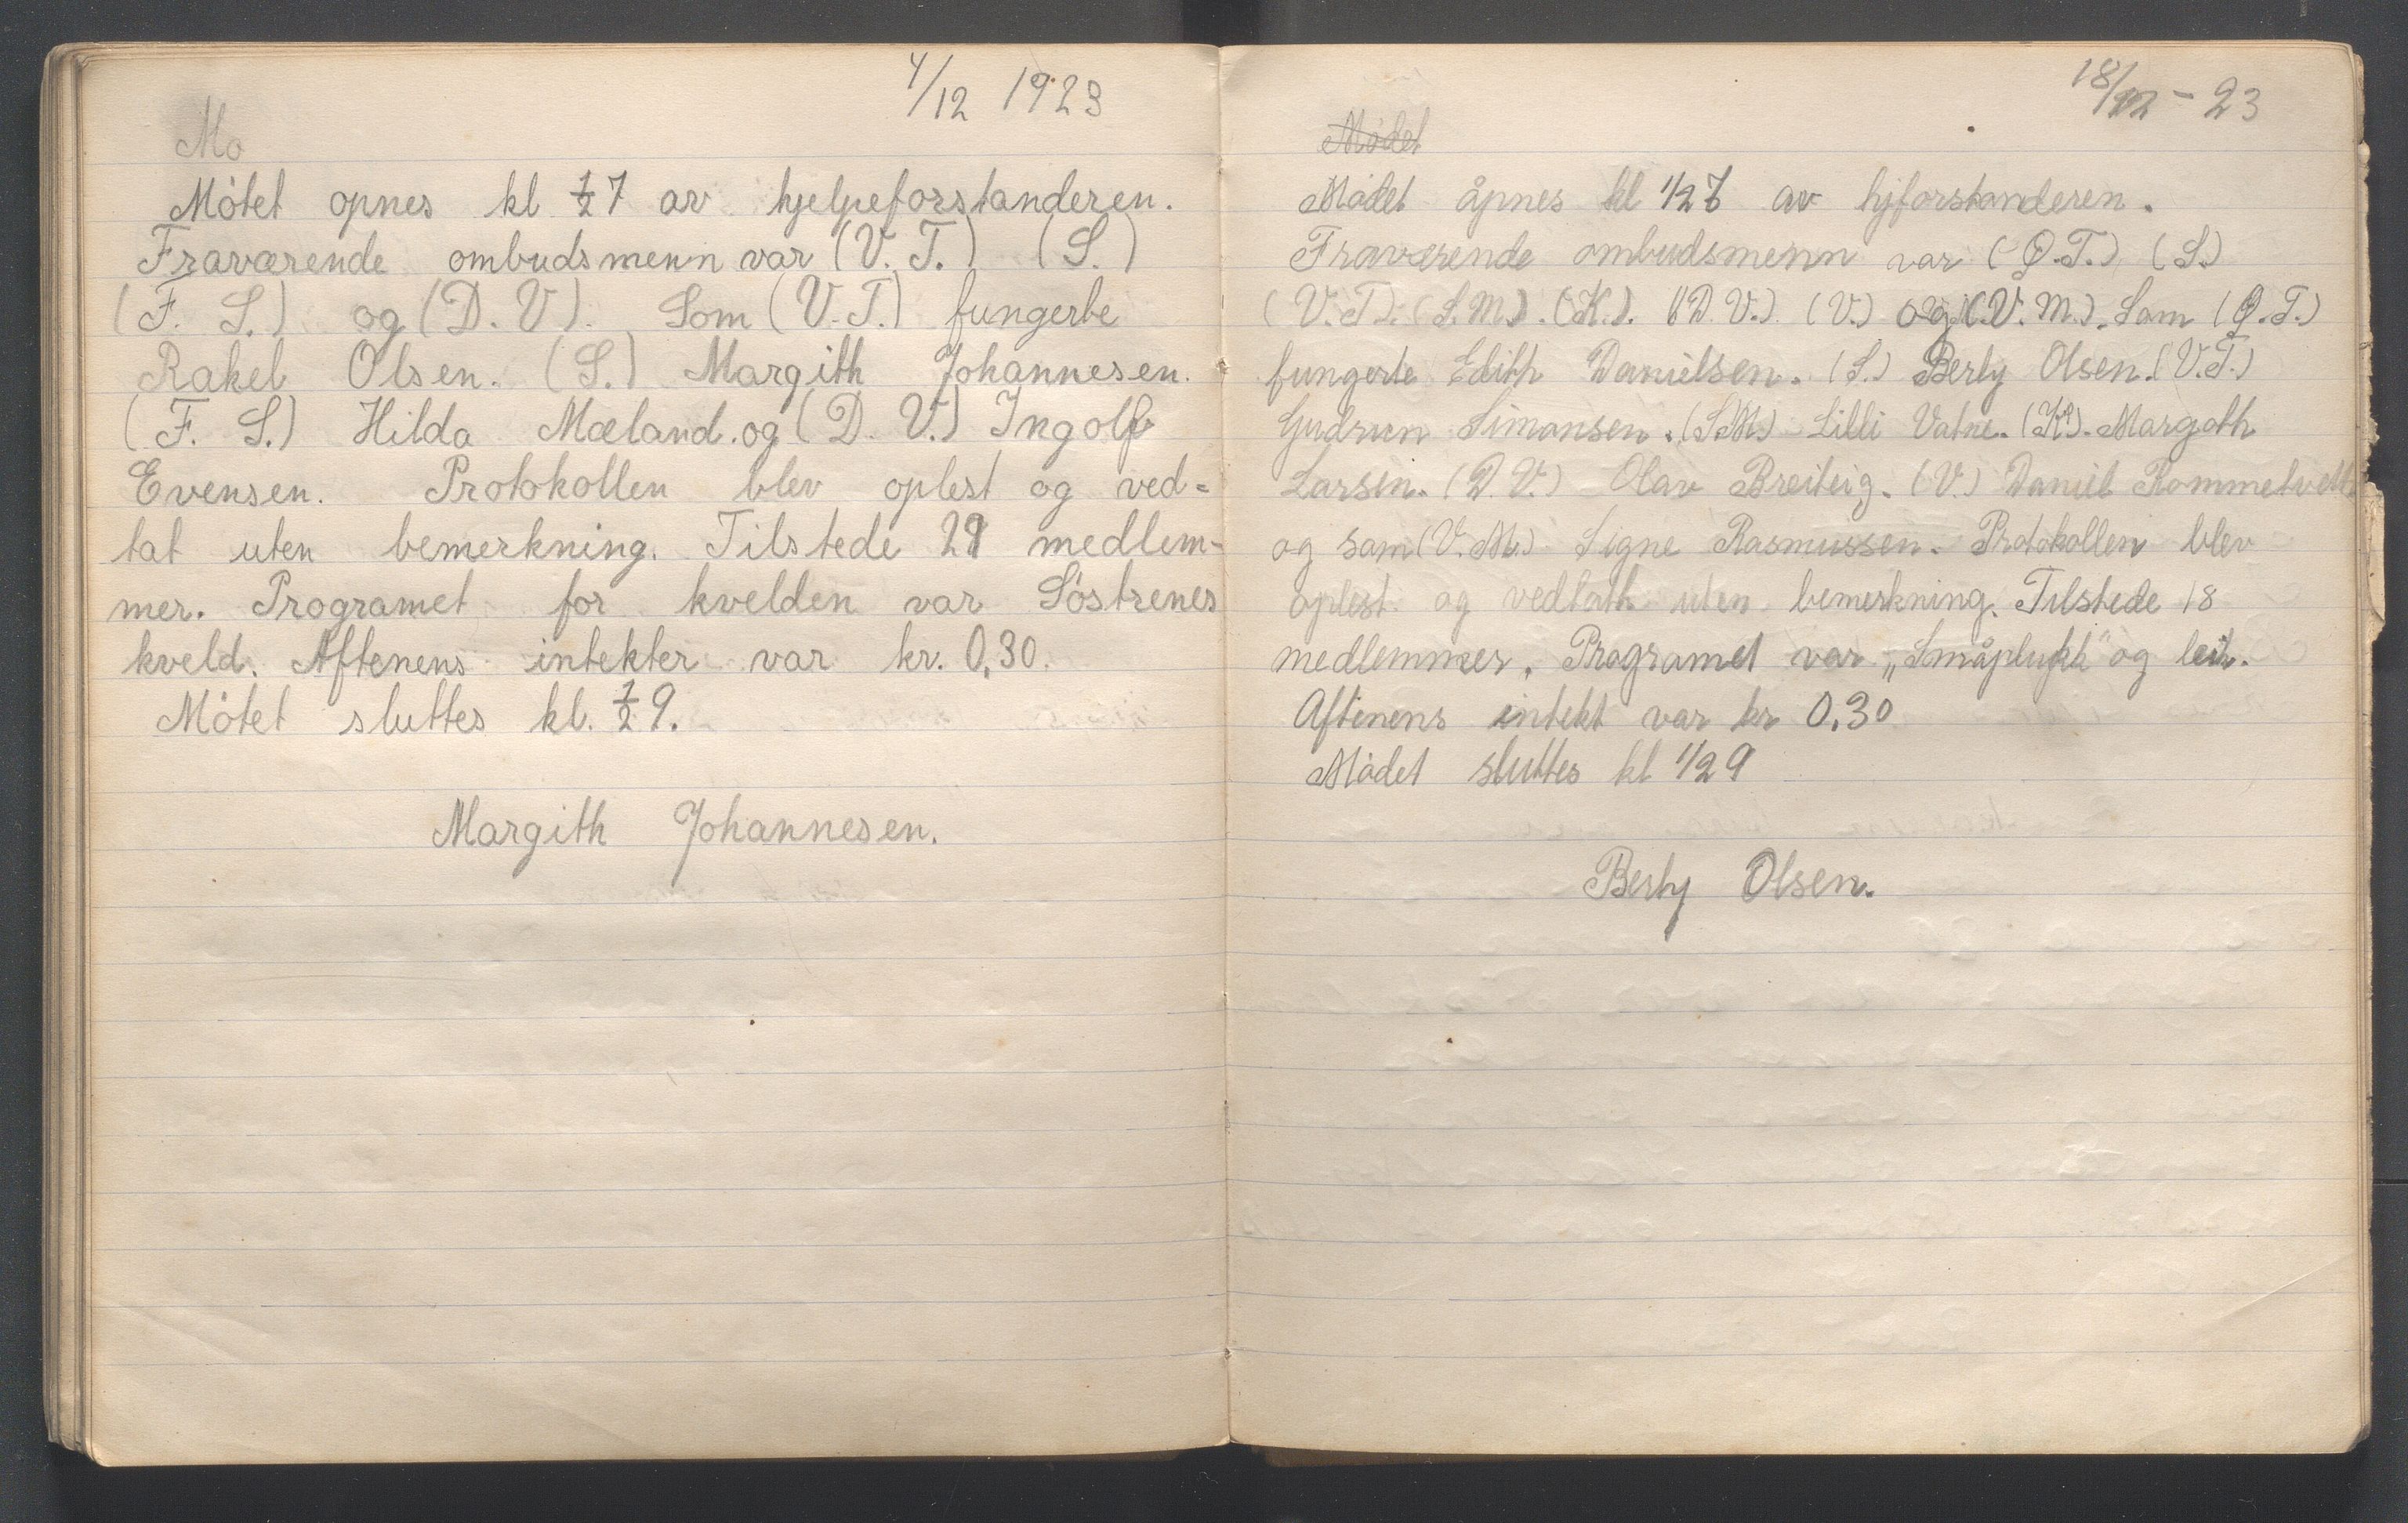 4/12 1923
Mo
Mötet opnes kl ½ 7 av hjelpeforstanderen.
Fraværende ombudsmenn var (V. T.) (S.)
(F. S.) og (D. V). Som (V. T.) fungerte
Rakel Olsen. (S.) Margith Johannesen.
(F. S.) Hilda Mæland. og (D. V.) Ingolf
Evensen. Protokollen blev oplest og ved=
tat uten bemerkning. Tilstede medlem-
mer. Programet for kvelden var Söstrenes
kveld. Aftenens intekter var kr. 0,30.
Mötet sluttes kl. ½ 9.
Margith Johannesen.
18/12 - 23
Mödet
Mödet åpnes kl 1/2 7 av hjforstanderen.
Fraværende ombudsmenn var (Ø.T.) (S.)
(V.T). (S.M.). (K.). (D.V.). (V.) og (V.M.). Som (Ø.T.)
fungerte Edith Danielsen. (S.) Berly Olsen. (V.T.)
Gudrun Simonsen. (S.M.) Lilli Vatne. (K). Margoth
Larsen. (D.V.) Olav Breiteig. (V.) Daniel Rommetvett
og som (V.M.) Signe Rasmussen. Protokollen blev
oplest og vedtath uten bemerkning. Tilstede 18
medlemmer. Programet var „Småplukk" og leik.
Aftenens intekt var kr 0.30
Mödet sluttes kl 1/2 9
Berly Olsen.